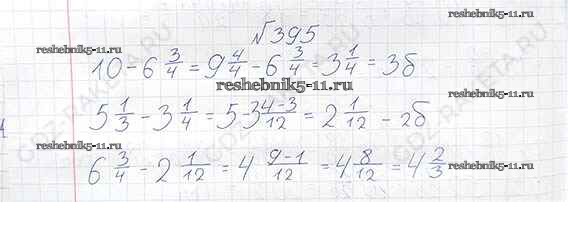 №395
reshebnik5-11.ru reshebnik5-11.ru
10 - 6 3/4 = 9 4/4 - 6 3/4 = 3 1/4 = 3б
reshebnik5-11.ru
5 1/3 - 3 1/4 = 5-3 4-3/12 = 2 1/12 - 2б
reshebnik5-11.ru reshebnik5-11.ru
6 3/4 - 2 1/12 = 4 9-1/12 = 4 8/12 = 4 2/3
GDZ-RAKETA.RU